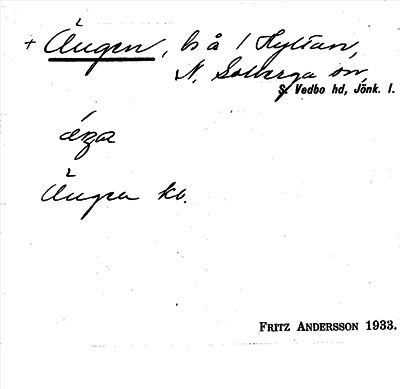 + Ängen, bs å 1 Hyltan,
N. Solberga sn,
S. Vedbo hd, Jönk. l.
áza
Ängen kv.
FRITZ ANDERSSON 1933.